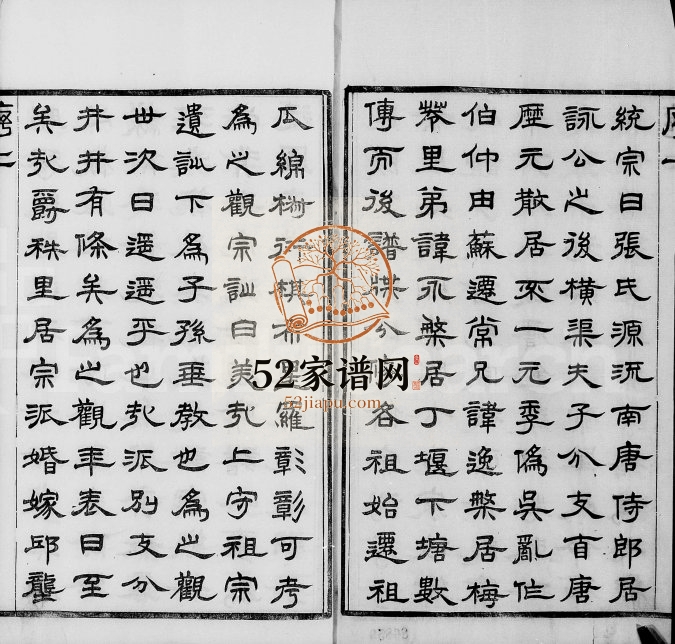 序一
統宗曰張氏源流南唐侍郎居
詠公之後橫渠夫子分支自唐
歷元散居不一元季偽吳亂作
伯仲由蘇遷常兄諱逸槃居梅
里弟諱永槃居丁堰下塘數
傳而後譜牒分各祖始遷祖
瓜綿椒衍棋布星羅彰彰可考
為之觀宗訓曰美哉上守祖宗
遺訓下為子孫垂教也為之觀
世次曰遥遥乎也哉派別支分
井井有條矣為之觀年表曰至
矣哉爵秩里居宗派婚嫁邱壟
序二
52家谱网
52jiapu.com